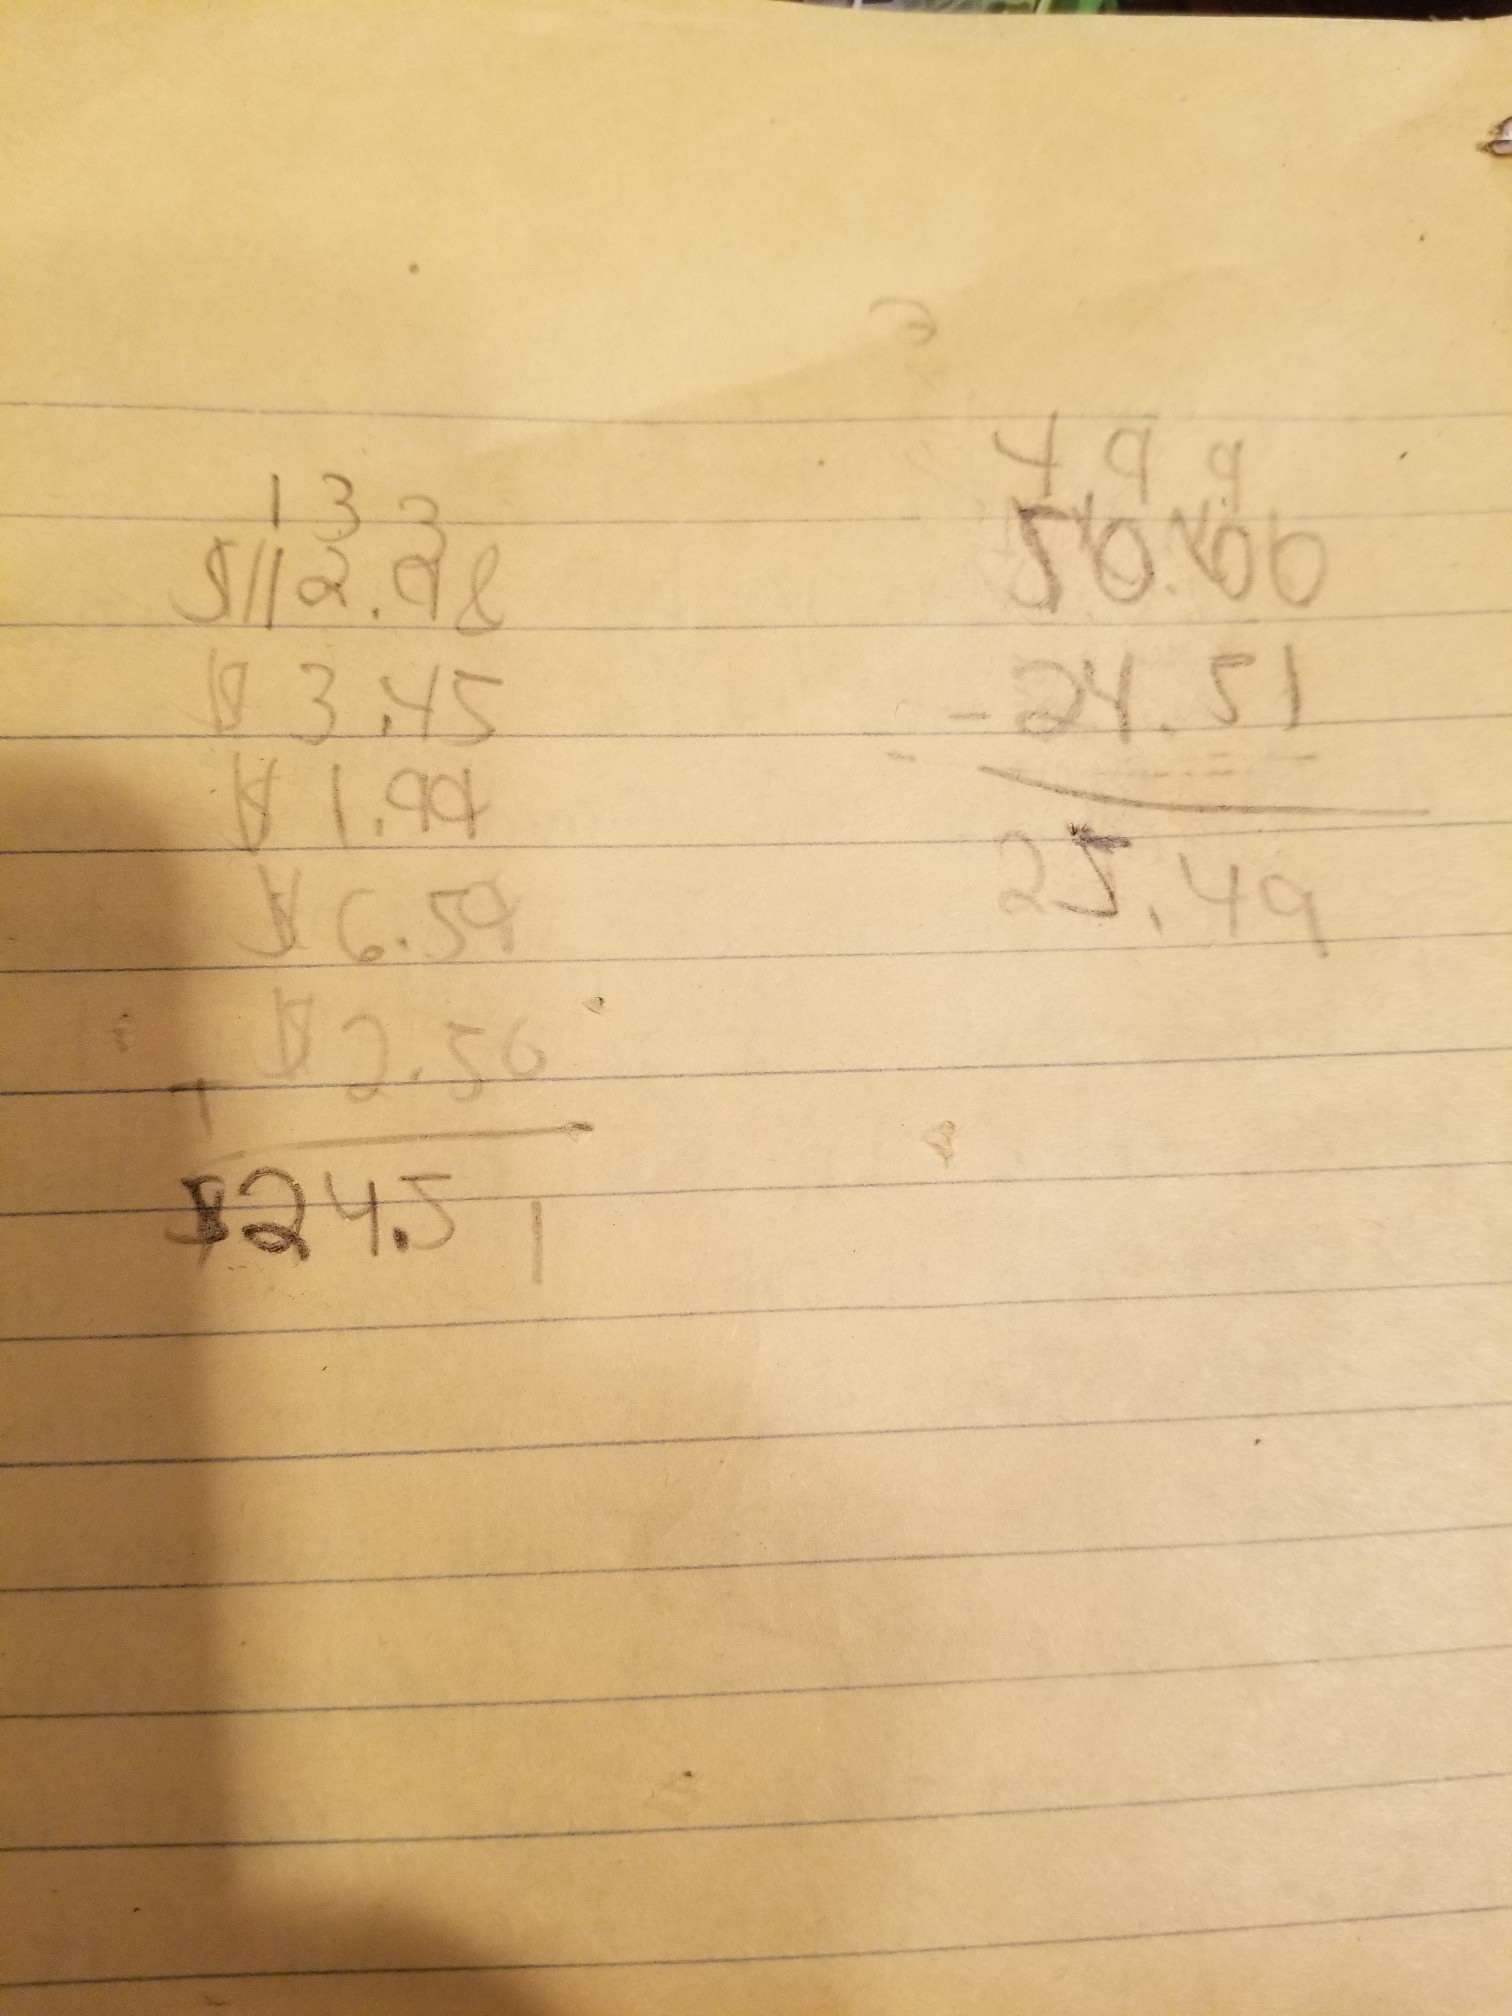 1 3 3
$12.98
$ 3.45
$ 1.99
$ 6.59
+ $ 2.50
$24.51
4 9 9
50.00
- 24.51
25.49